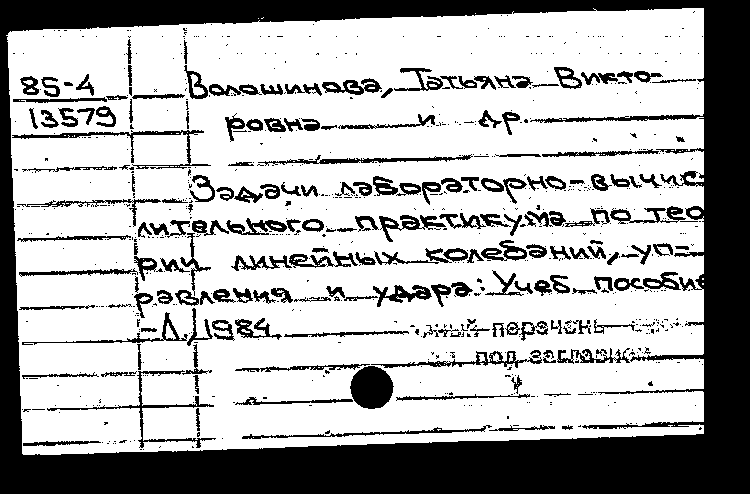 85-4
13579
Волошинова, Татьяна Викто-
ровна и др.
Задачи лабораторно-вычис-
лительного практикума по тео
рии линейных колебаний, уп-
равления и удара: Учеб. пособие
-Л., 1984.
перечень
под заглавием